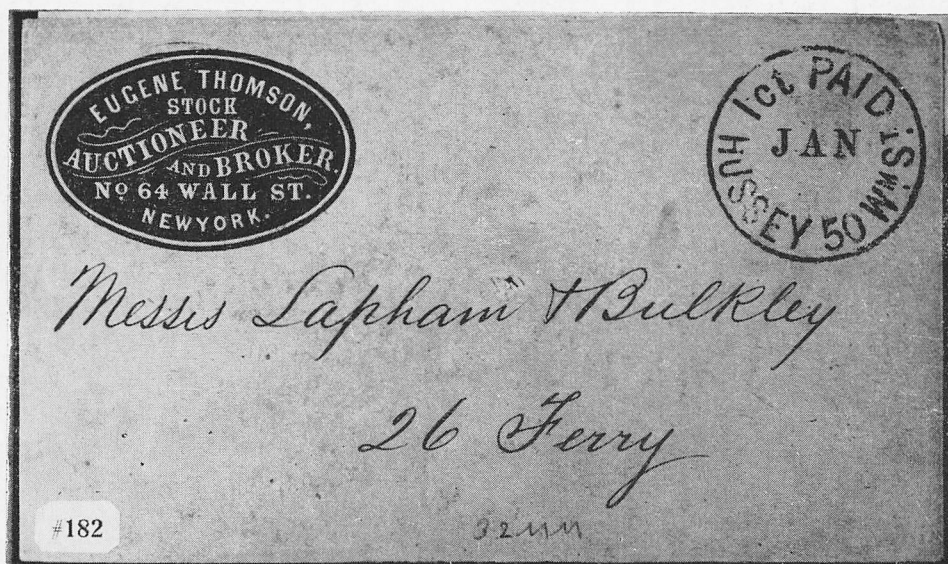 EUGENE THOMSON,
STOCK
AUCTIONEER
AND BROKER.
No 64 WALL ST.
NEW YORK.
1ct PAID
JAN
HUSSEY 50 Wm St.
Messrs Lapham & Bulkley
26 Ferry
#182
32mm